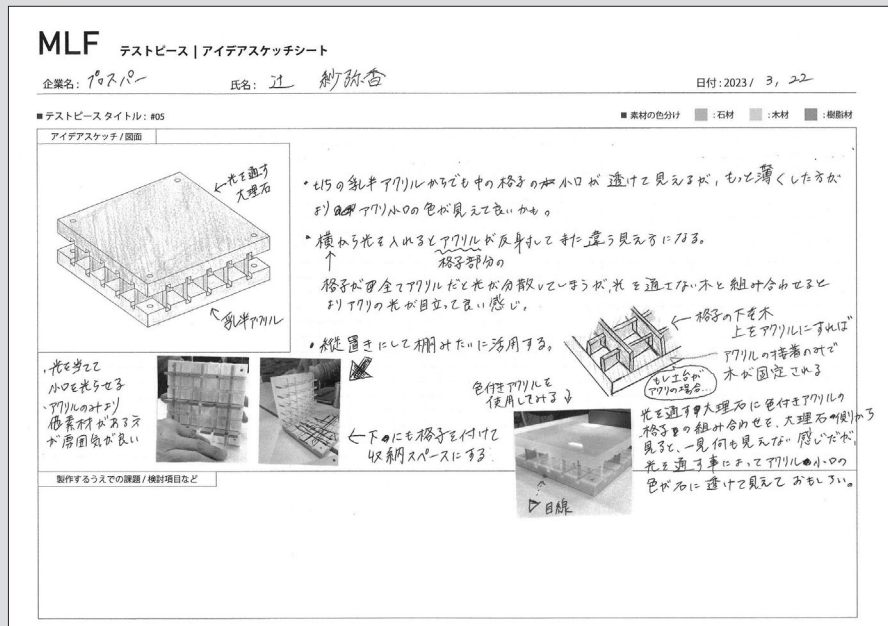 MLF テストピース | アイデアスケッチシート
企業名: プロスパー 氏名: 辻 紗弥香 日付: 2023 / 3, 22
■ テストピース タイトル: #05 ■ 素材の色分け :石材 :木材 :樹脂材
アイデアスケッチ / 図面
←光を通す
大理石
乳半アクリル
・t15の乳半アクリルからでも中の格子の小口が透けて見えるが、もっと薄くした方が
よりアクリ小口の色が見えて良いかも。
・横から光を入れるとアクリルが反射してまた違う見え方になる。
格子部分の
↑
格子が全てアクリルだと光が分散してしまうが、光を通さない木と組み合わせると
よりアクリの光が目立って良い感じ。
・縦置きにして棚みたいに活用する。
← 格子の下を木
上をアクリルにすれば
アクリルの接着のみで
木が固定される
もし土台が
アクリの場合…
・光を当てて
小口を光らせる
・アクリルのみより
他素材がある方
が雰囲気が良い
←下にも格子を付けて
収納スペースにする
色付きアクリルを
使用してみる↓
目線
光を通す大理石に色付きアクリルの
格子の組み合わせを、大理石側から
見ると、一見何も見えない感じだが、
光を通す事によってアクリル小口の
色が石に透けて見えておもしろい。
製作するうえでの課題 / 検討項目など